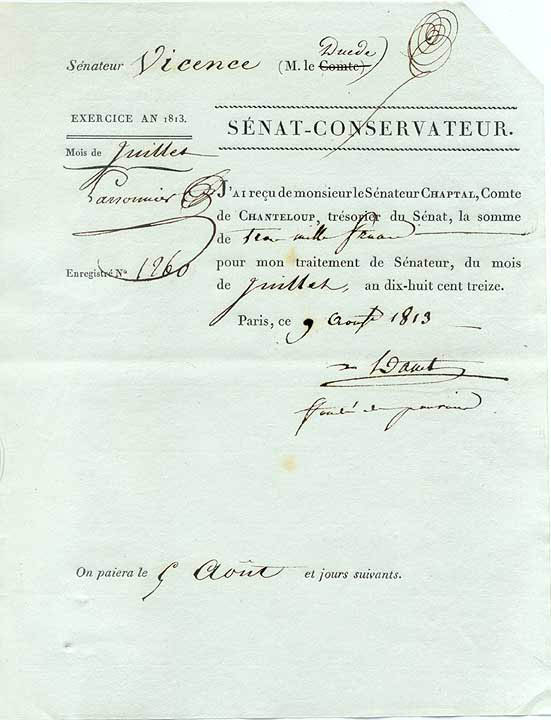 Duc de
Sénateur Vicence (M. le Comte)
EXERCICE AN 1813.
SÉNAT-CONSERVATEUR.
Mois de Juillet
J'AI reçu de monsieur le Sénateur CHAPTAL, Comte
de CHANTELOUP, trésorier du Sénat, la somme
de trois mille francs
Enregistré No 1260
pour mon traitement de Sénateur, du mois
de Juillet, an dix-huit cent treize.
Paris, ce 9 Août 1813
fondé de pouvoirs
On paiera le 5 Août et jours suivants.